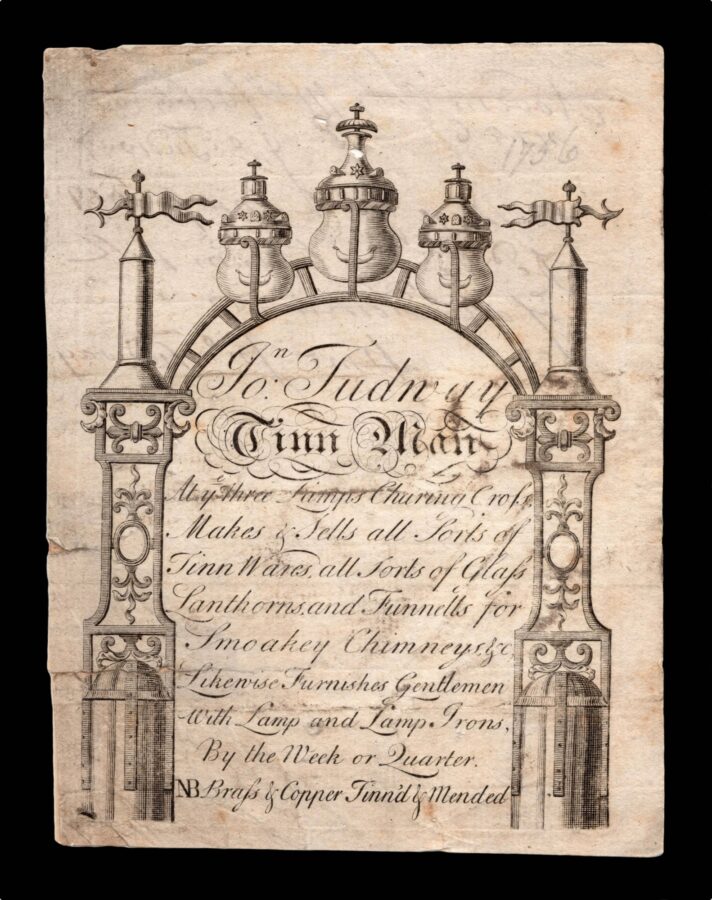 1756
Jo:ⁿ Tudway
Tinn Man
At yᵉ three Lamps Charing Croſs,
Makes & Sells all Sorts of
Tinn Wares, all Sorts of Glaſs
Lanthorns, and Funnells for
Smoakey Chimneys, &c
Likewise Furnishes Gentlemen
With Lamp and Lamp Irons,
By the Week or Quarter.
NB Braſs & Copper Tinn'd & Mended